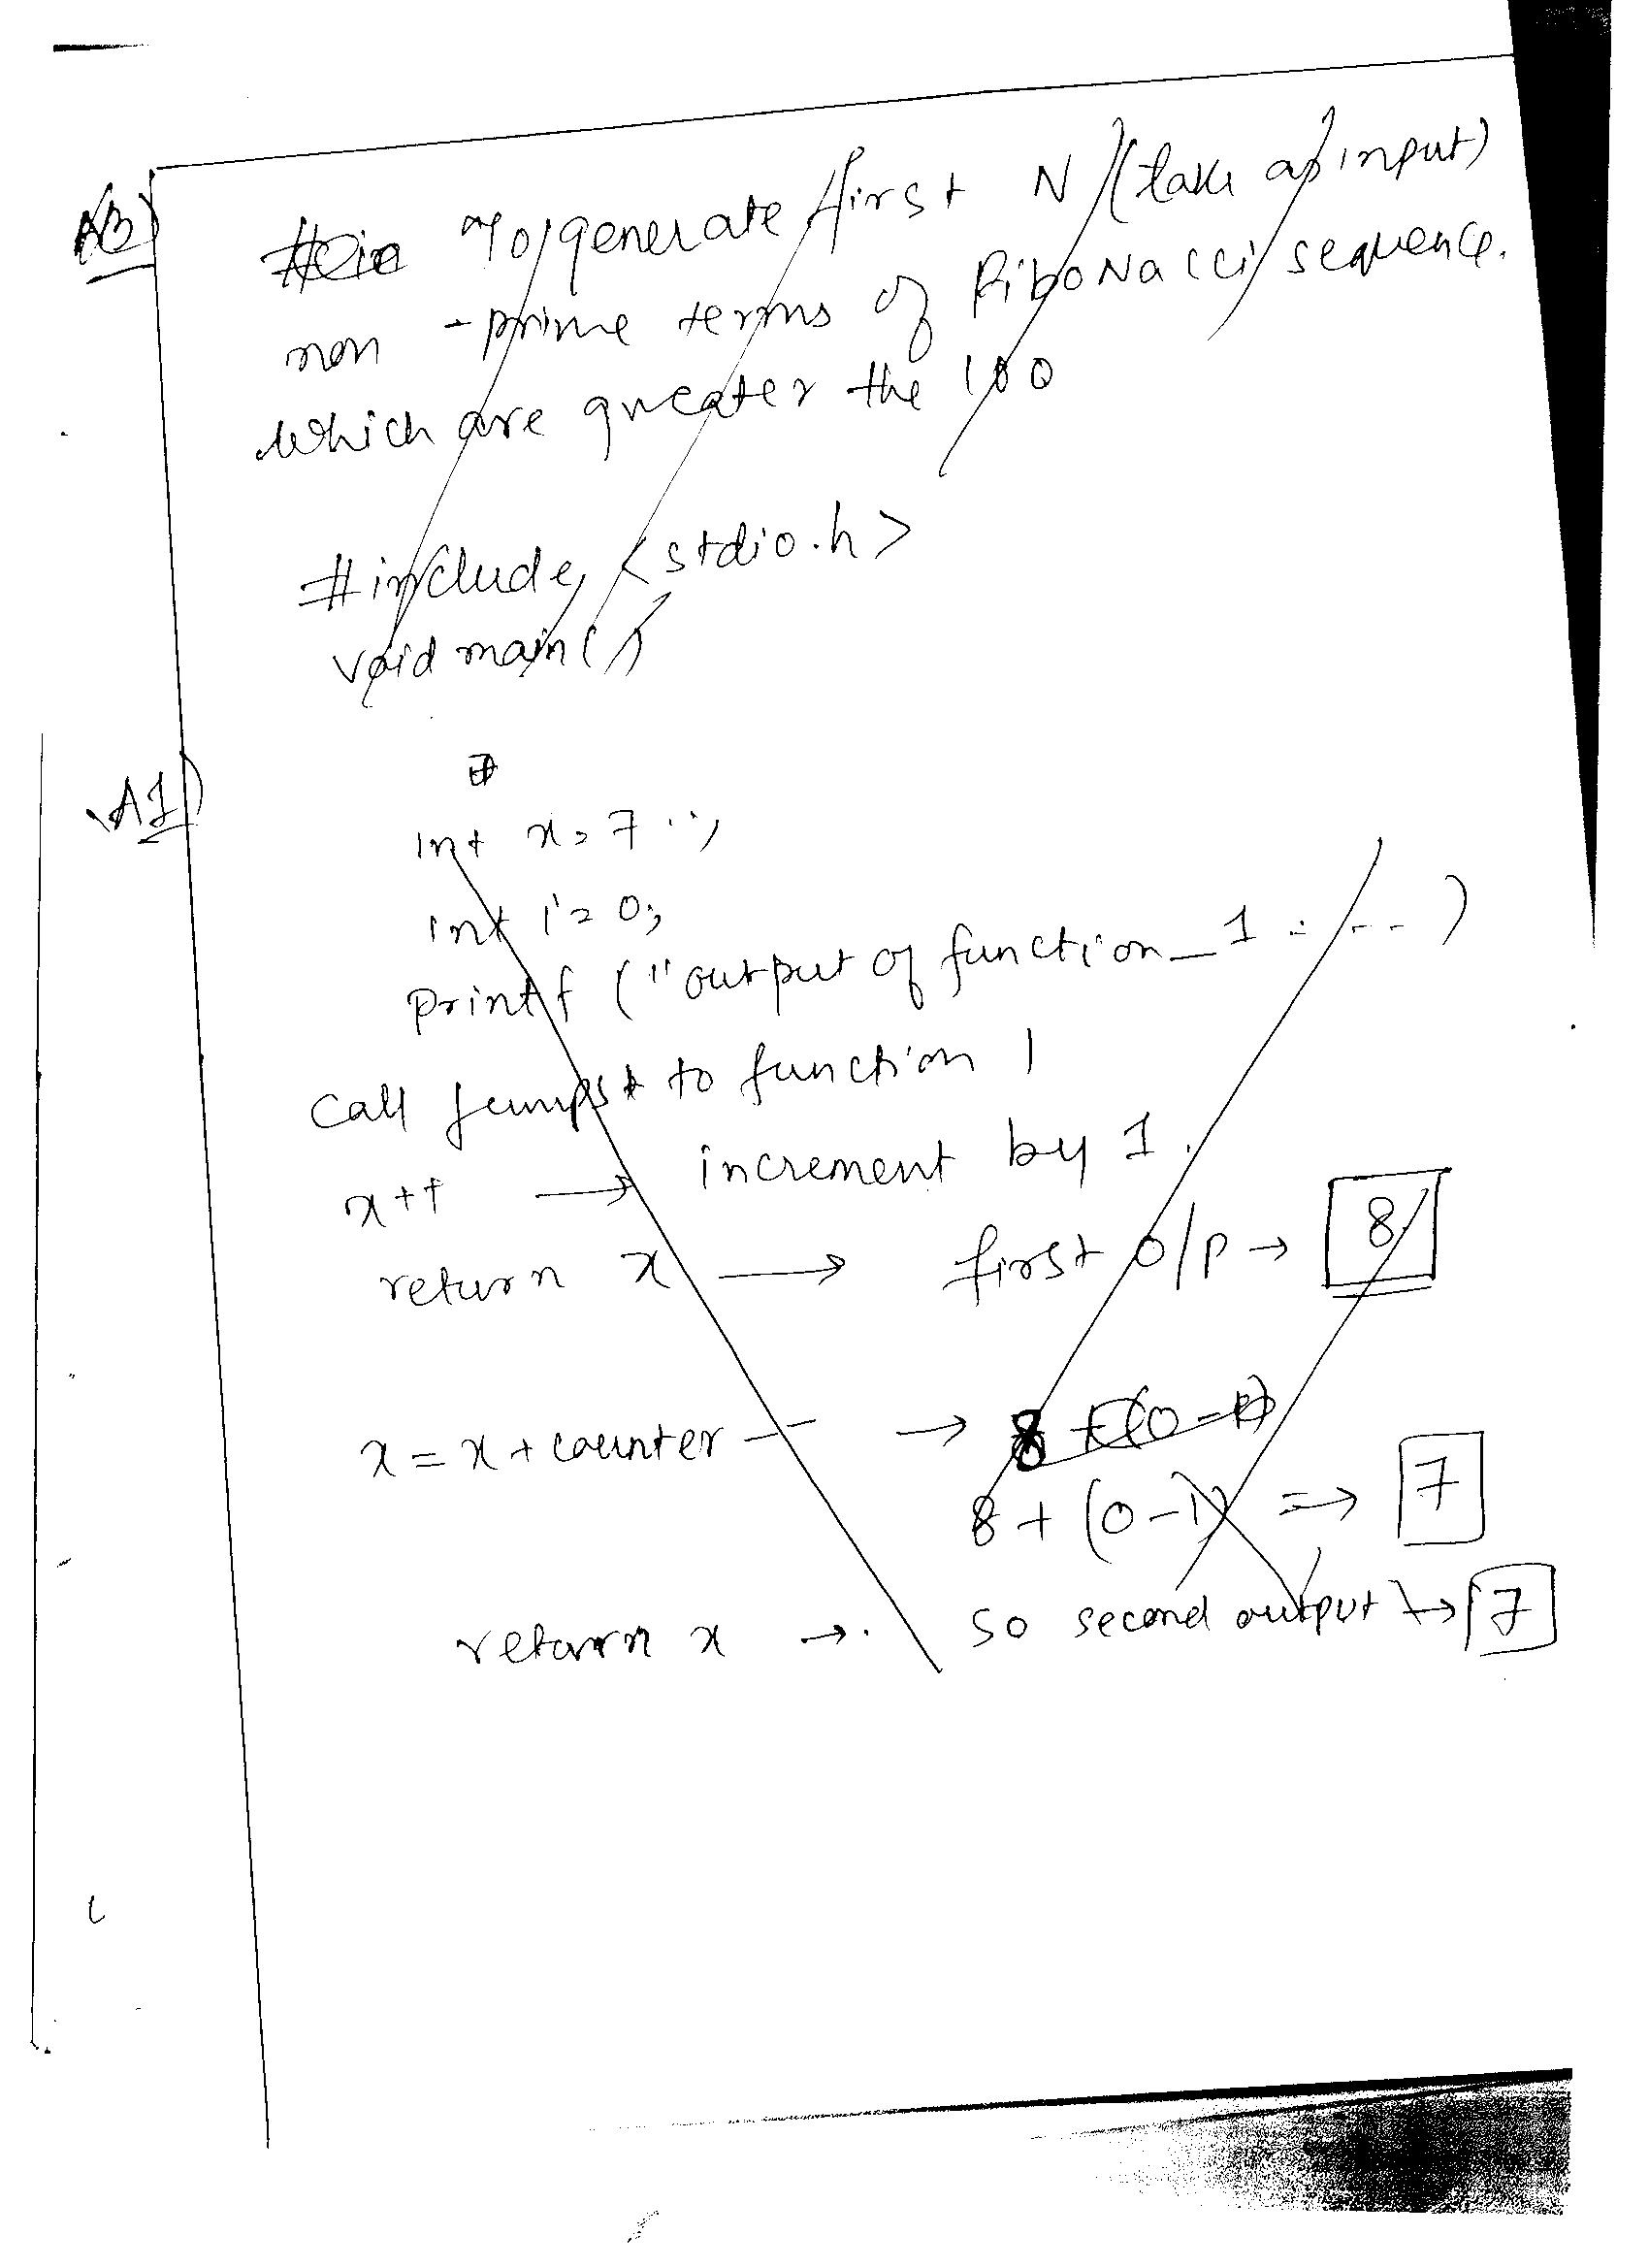 A3)
#in To generate first N (take as input)
non - prime terms of Fibonacci sequence.
which are greater the 100
#include <stdio.h>
void main()
A1)
int x = 7 ;
int i = 0;
printf ("output of function_1 : --- )
Call jumps to function 1
x++ → increment by 1.
return x → first o/p → 8
x = x + counter -- → 8 + (0-1)
8 + (0-1) => 7
return x → . so second output → 7